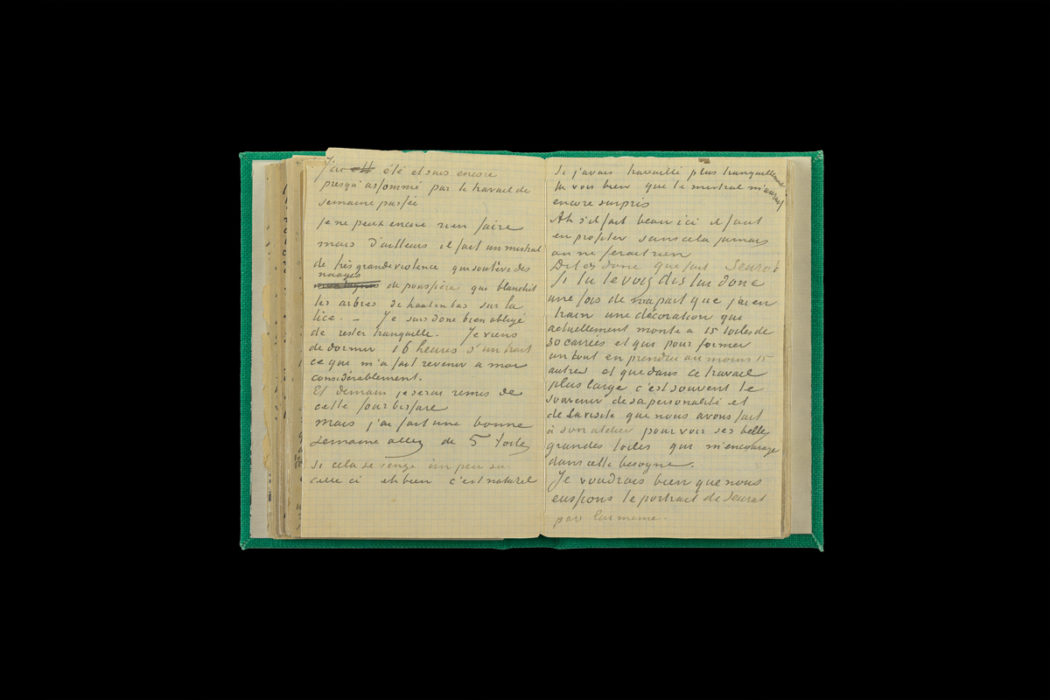 J'ai été et suis encore
presqu'assommé par le travail de
semaine passée
je ne peux encore rien faire
mais d'ailleurs il fait un mistral
de très grande violence qui soulève des
nuages
de poussière qui blanchit
les arbres de haut en bas sur la
lice. _ Je suis donc bien obligé
de rester tranquille. Je viens
de dormir 16 heures d'un trait
ce que m'a fait revenir a moi
considérablement.
Et demain je serai remis de
cette
mais j'ai fait une bonne
semaine allez de 5 toiles
si cela se venge un peu sur
celle ci eh bien c'est naturel
Si j'avais travaillé plus tranquillement
tu vois bien que le mistral m'aurait
encore surpris
Ah s'il fait beau ici il faut
en profiter sans cela jamais
on ne ferait rien
Dites donc que fait Seurat
Si tu le vois dis lui donc
une fois de ma part que j'ai en
train une décoration que
actuellement monte a 15 toiles de
30 carrées et que pour former
un tout en prendra au moins 15
autres et que dans ce travail
plus large c'est souvent le
souvenir de sa personalité et
de la visite que nous avons fait
à son atelier pour voir ses belles
grandes toiles qui m'encourage
dans cette besogne.
Je voudrais bien que nous
eussions le portrait de Seurat
par lui meme.